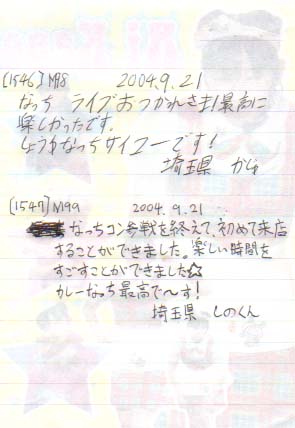 [1546] M98 2004.9.21
なっち ライブおつかれさま!最高に
楽しかったです。
しょうゆなっちサイコーです!
埼玉県 かじゅ
[1547] M99 2004.9.21
なっちコン参戦を終えて、初めて来店
することができました。楽しい時間を
すごすことができました☆
カレーなっち最高で~す!
埼玉県 しのくん